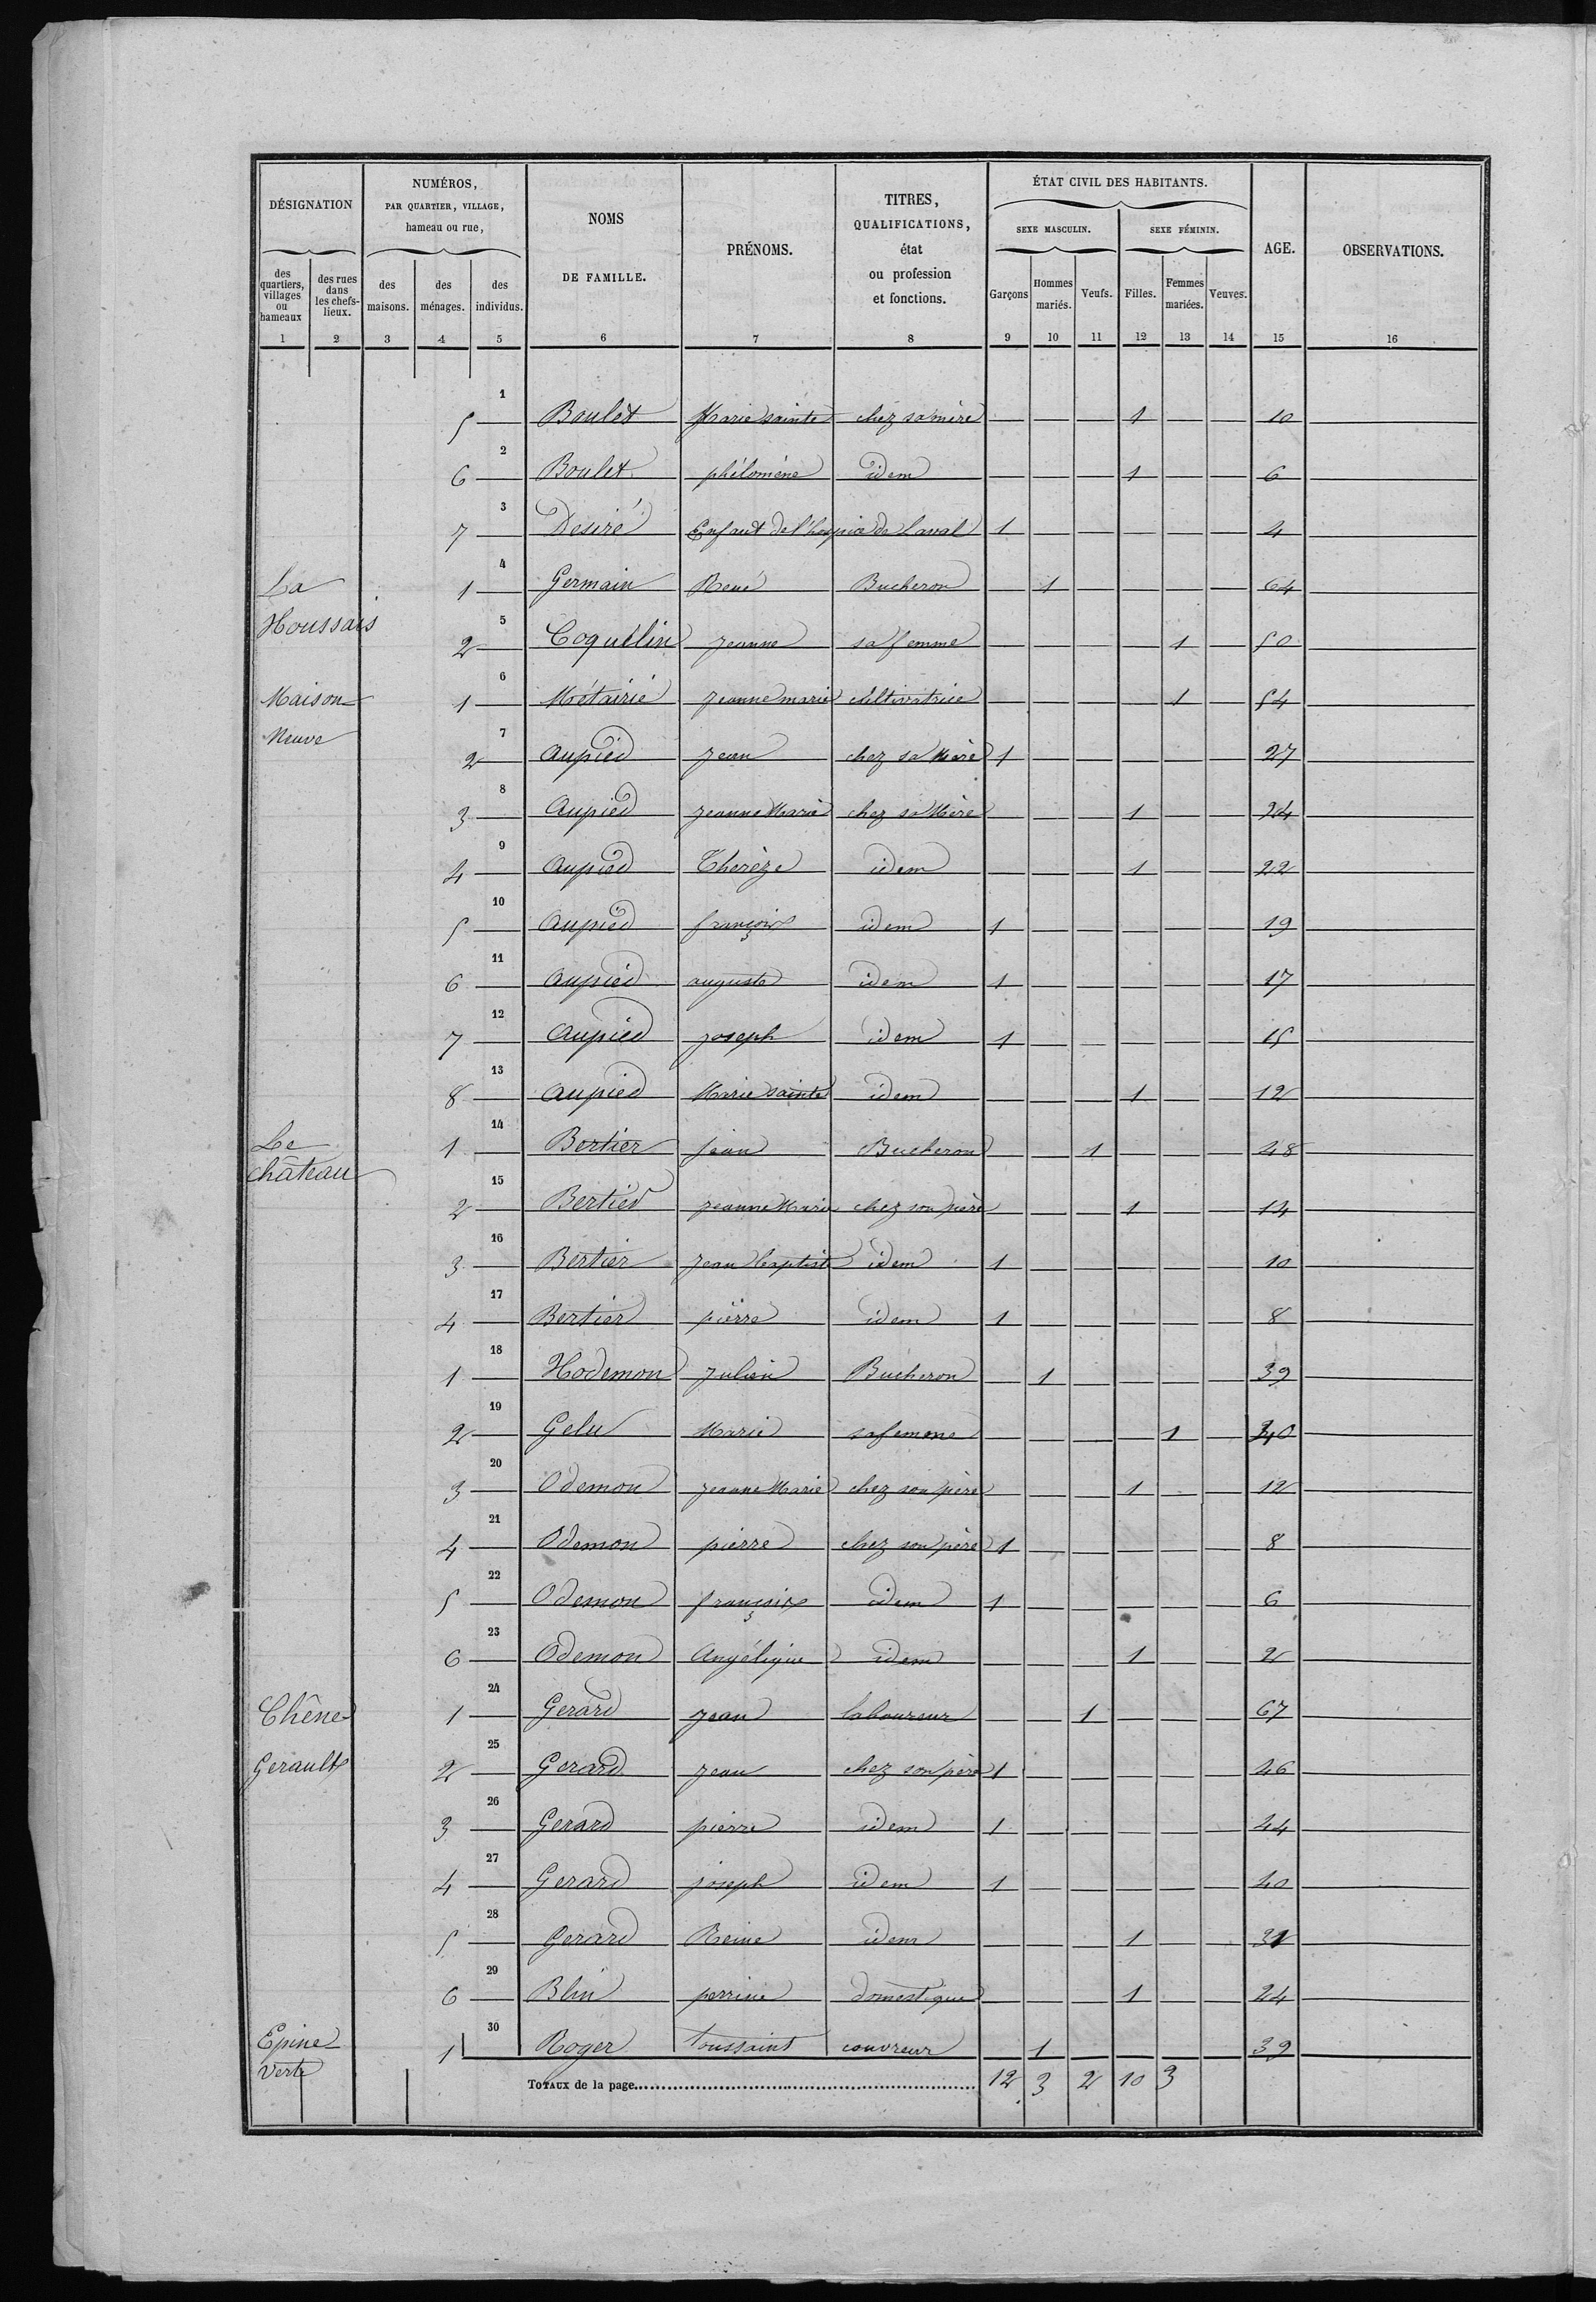 DÉSIGNATION
NUMÉROS,
PAR QUARTIER, VILLAGE,
hameau ou rue,
NOMS
DE FAMILLE.
PRÉNOMS.
TITRES,
QUALIFICATIONS,
état
ou profession
et fonctions.
ÉTAT CIVIL DES HABITANTS.
SEXE MASCULIN.
SEXE FÉMININ.
AGE.
OBSERVATIONS.
des quartiers, villages ou hameaux
des rues dans les chefs-lieux.
des maisons.
des ménages.
des individus.
Garçons
Hommes mariés.
Veufs.
Filles.
Femmes mariées.
Veuves.
1 2 3 4 5 6 7 8 9 10 11 12 13 14 15 16
5 1 Boulet Marie sainte chez sa mère 1 10
6 2 Boulet phélomène idem 1 6
7 3 Desiré Enfant de l'hospice de Laval 1 4
La 1 4 Germain René Bucheron 1 64
Houssais 2 5 Coquelin jeanne sa femme 1 50
Maison 1 6 Métairié jeanne marie cultivatrice 1 54
Neuve 2 7 aupied jean chez sa Mère 1 27
3 8 Aupied jeanne Marie chez sa Mère 1 24
4 9 aupied Therèze idem 1 22
5 10 aupied françois idem 1 19
6 11 aupied auguste idem 1 17
7 12 aupied joseph idem 1 15
8 13 aupied Marie sainte idem 1 12
Le 1 14 Bertier jean Bucheron 1 48
château 2 15 Bertier jeanne Marie chez son père 1 14
3 16 Bertier jean baptiste idem 1 10
4 17 Bertier pierre idem 1 8
1 18 Hodemon julien Bucheron 1 39
2 19 Gelu Marie sa femme 1 40
3 20 Odemon jeanne Marie chez son père 1 12
4 21 Odemon pierre chez son père 1 8
5 22 Odemon françois idem 1 6
6 23 Odemon Angélique idem 1 2
Chêne 1 24 Gerard jean laboureur 1 67
Gerault 2 25 Gerard jean chez son père 1 46
3 26 Gerard pierre idem 1 44
4 27 Gerard joseph idem 1 40
5 28 Gerard Reine idem 1 31
6 29 Blin perrine domestique 1 24
Epine 1 30 Roger toussaint couvreur 1 39
Verte
TOTAUX de la page 12 3 2 10 3